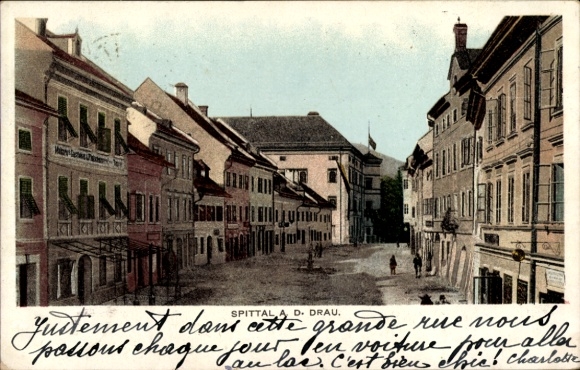 SPITTAL A. D. DRAU.
Justement dans cette grande rue nous
passons chaque jour en voiture pour aller
au lac. C'est bien chic! Charlotte